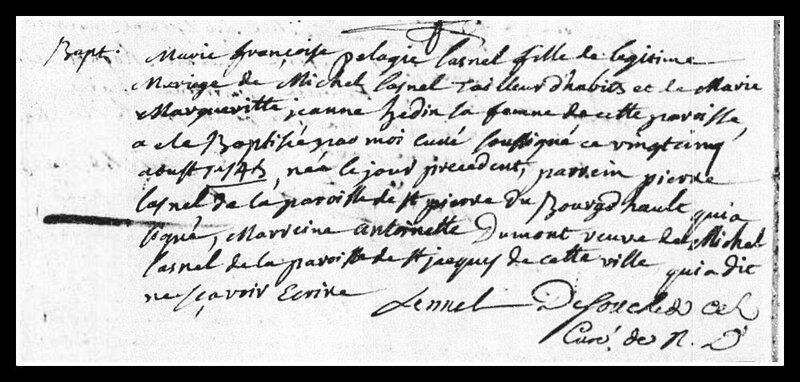 Bapt. Marie françoise pelagie Lasnel fille de legitime
Mariage de Michel Lasnel Tailleur d'habits et de Marie
Margueritte jeanne hedin sa femme de cette paroisse,
a ete Baptisée par moi curé soussigné ce vingt cinq
aoust 1745, née le jour precedent, parrein pierre
Lasnel de la paroisse de st pierre du Bourgdhault qui a
signé, Marreine antoinette Dumont veuve de Michel
Lasnel de la paroisse de st jacques de cette ville qui a dit
ne sçavoir Ecrire
Lennel
Curé de N. D